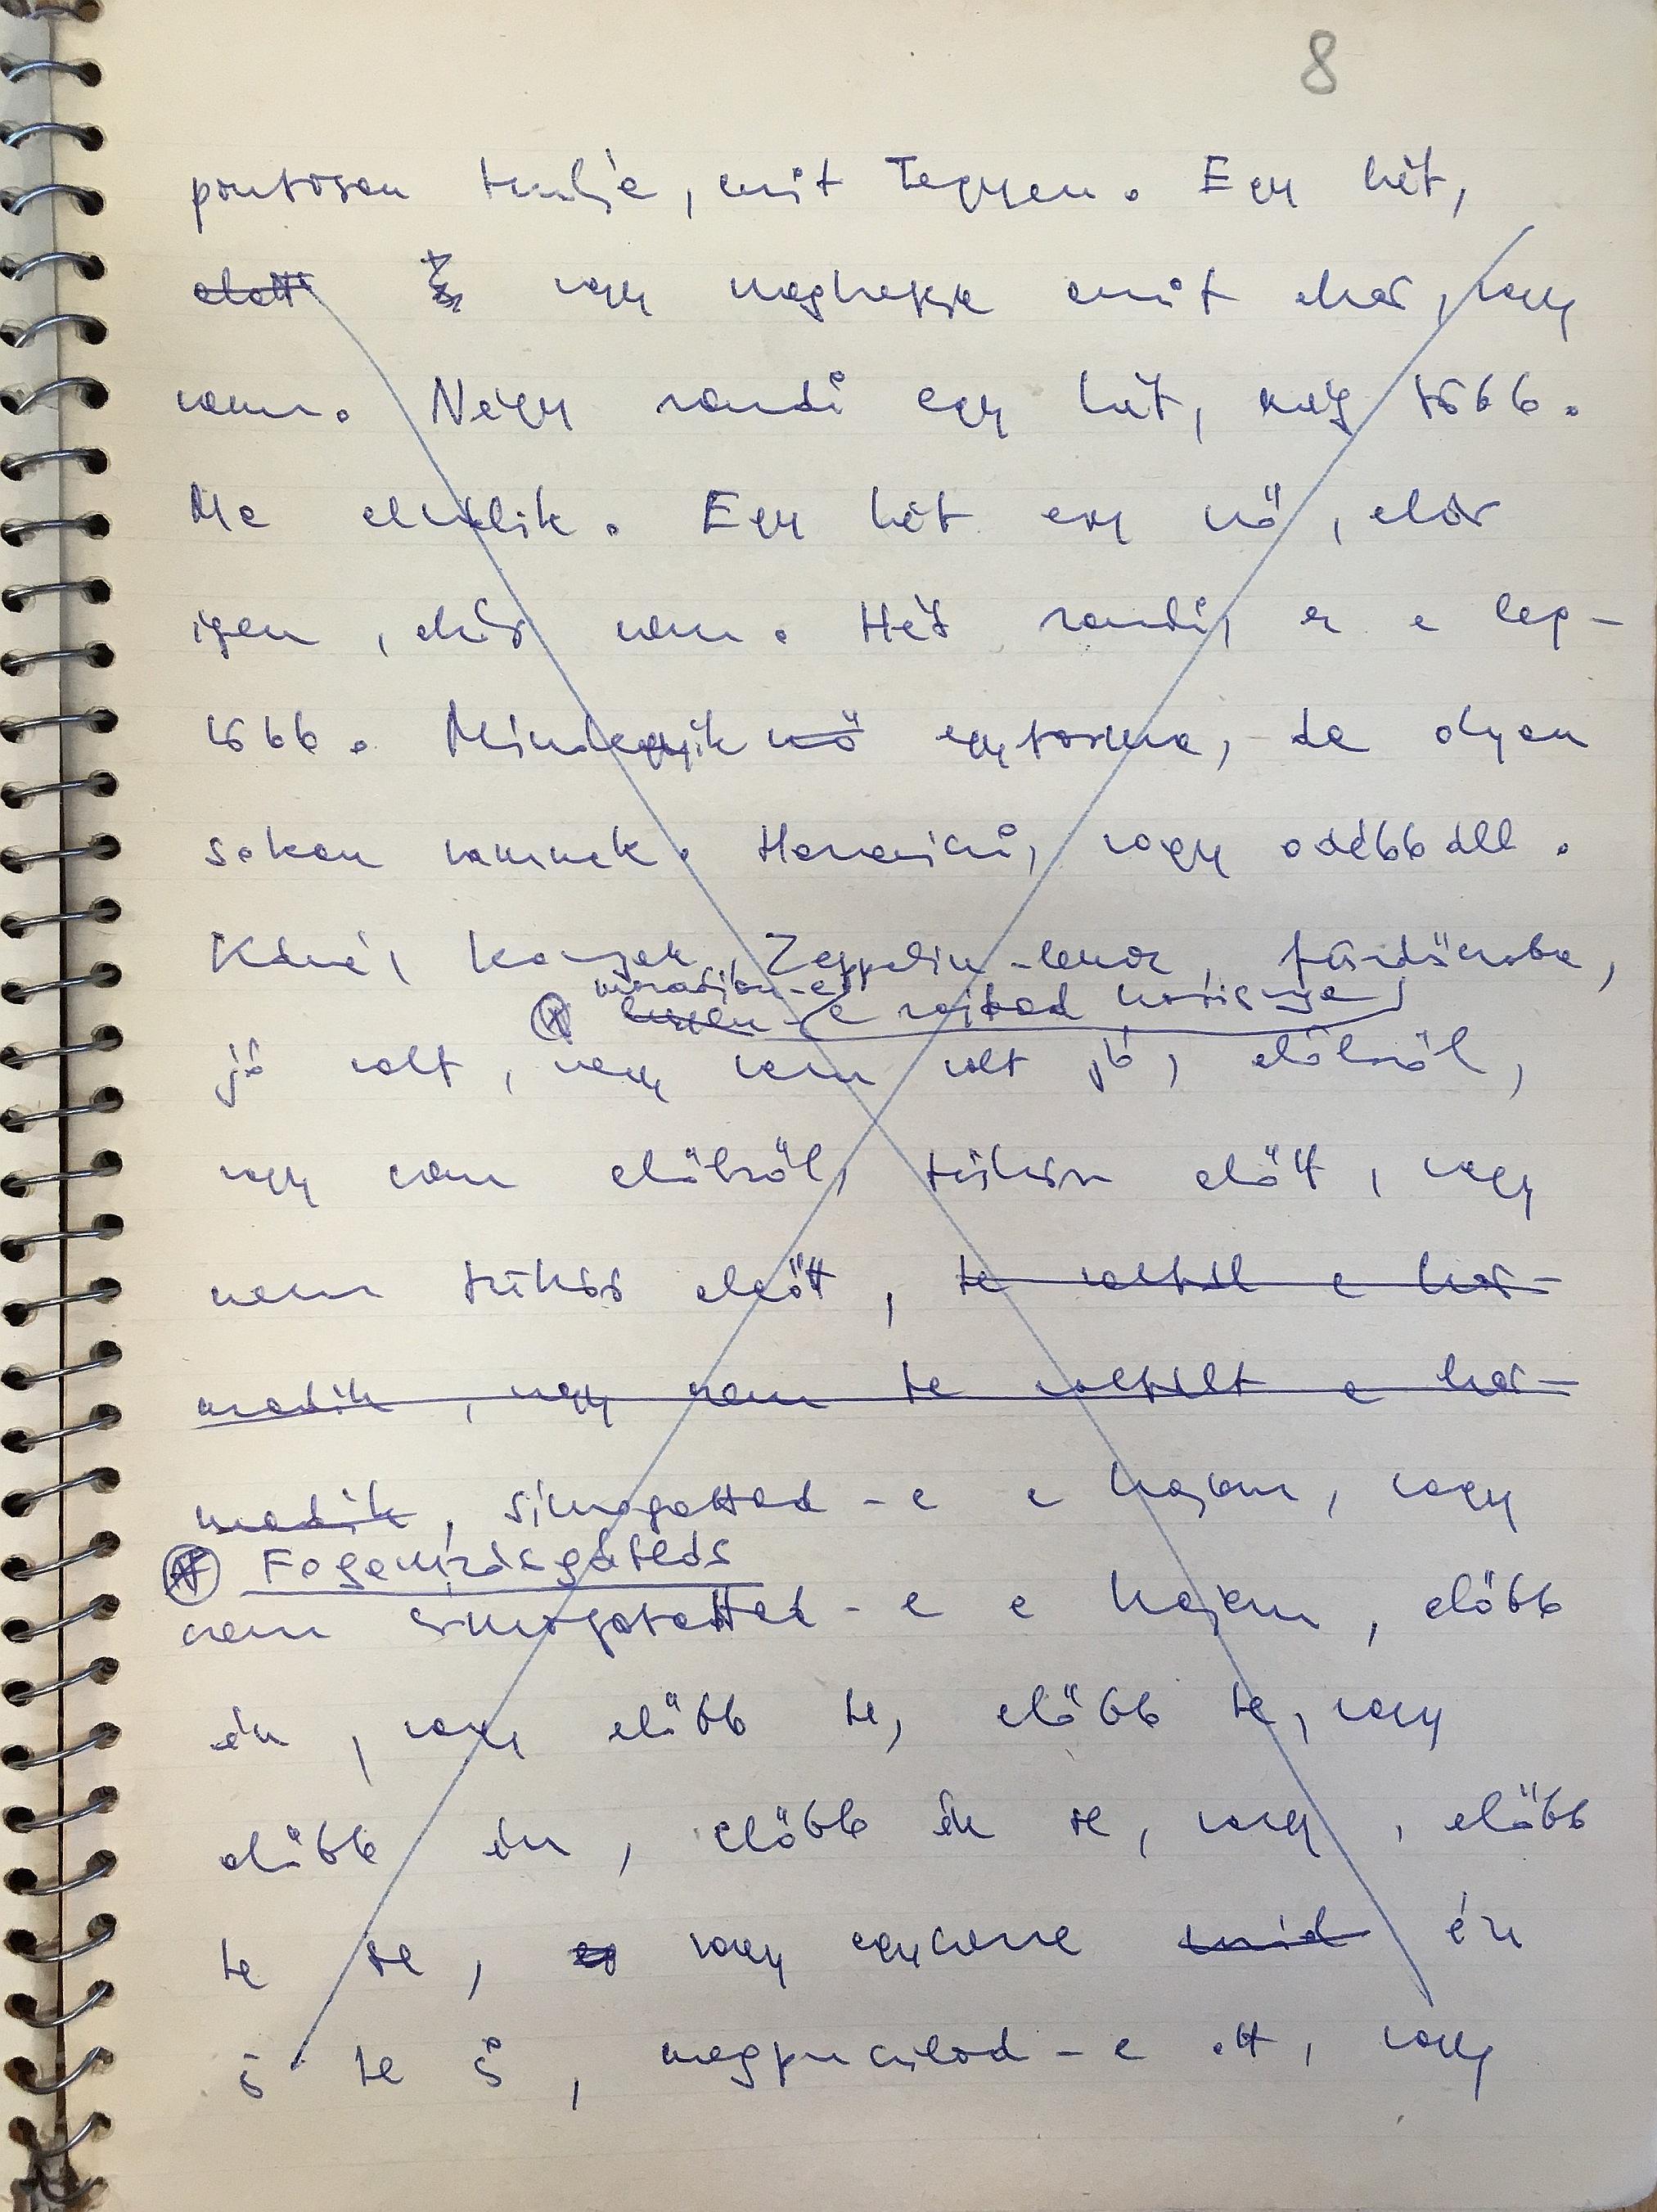 8
pontosan tudja, mit tegyen. Egy hét,
alatt vagy megkapja amit akar, vagy
nem. Négy randi egy hét, még több.
Ma elválik. Egy hét egy nő, akár
igen, akár nem. Hét randi, ez a leg-
több. Mindegyik nő egyforma, de olyan
sokan vannak. Hazaviszi, vagy odébbáll.
Kávé, konyak, Zeppelin-lemez, fürdőszoba,
maradjon-e
legyen-e rajtad harisnya
jó volt, vagy nem volt jó, elölről,
vagy nem elölről, tükör előtt, vagy
nem tükör előtt, te voltál a har-
madik, vagy nem te voltált a har-
madik, simogattad-e a hajam, vagy
Fogamzásgátlás
nem simogatattad-e a hajam, előbb
én, vagy előbb te, előbb te, vagy
előbb én, előbb én se, vagy, előbb
te se, vagy egyszerre én
s te s, megpucilod-e itt, vagy